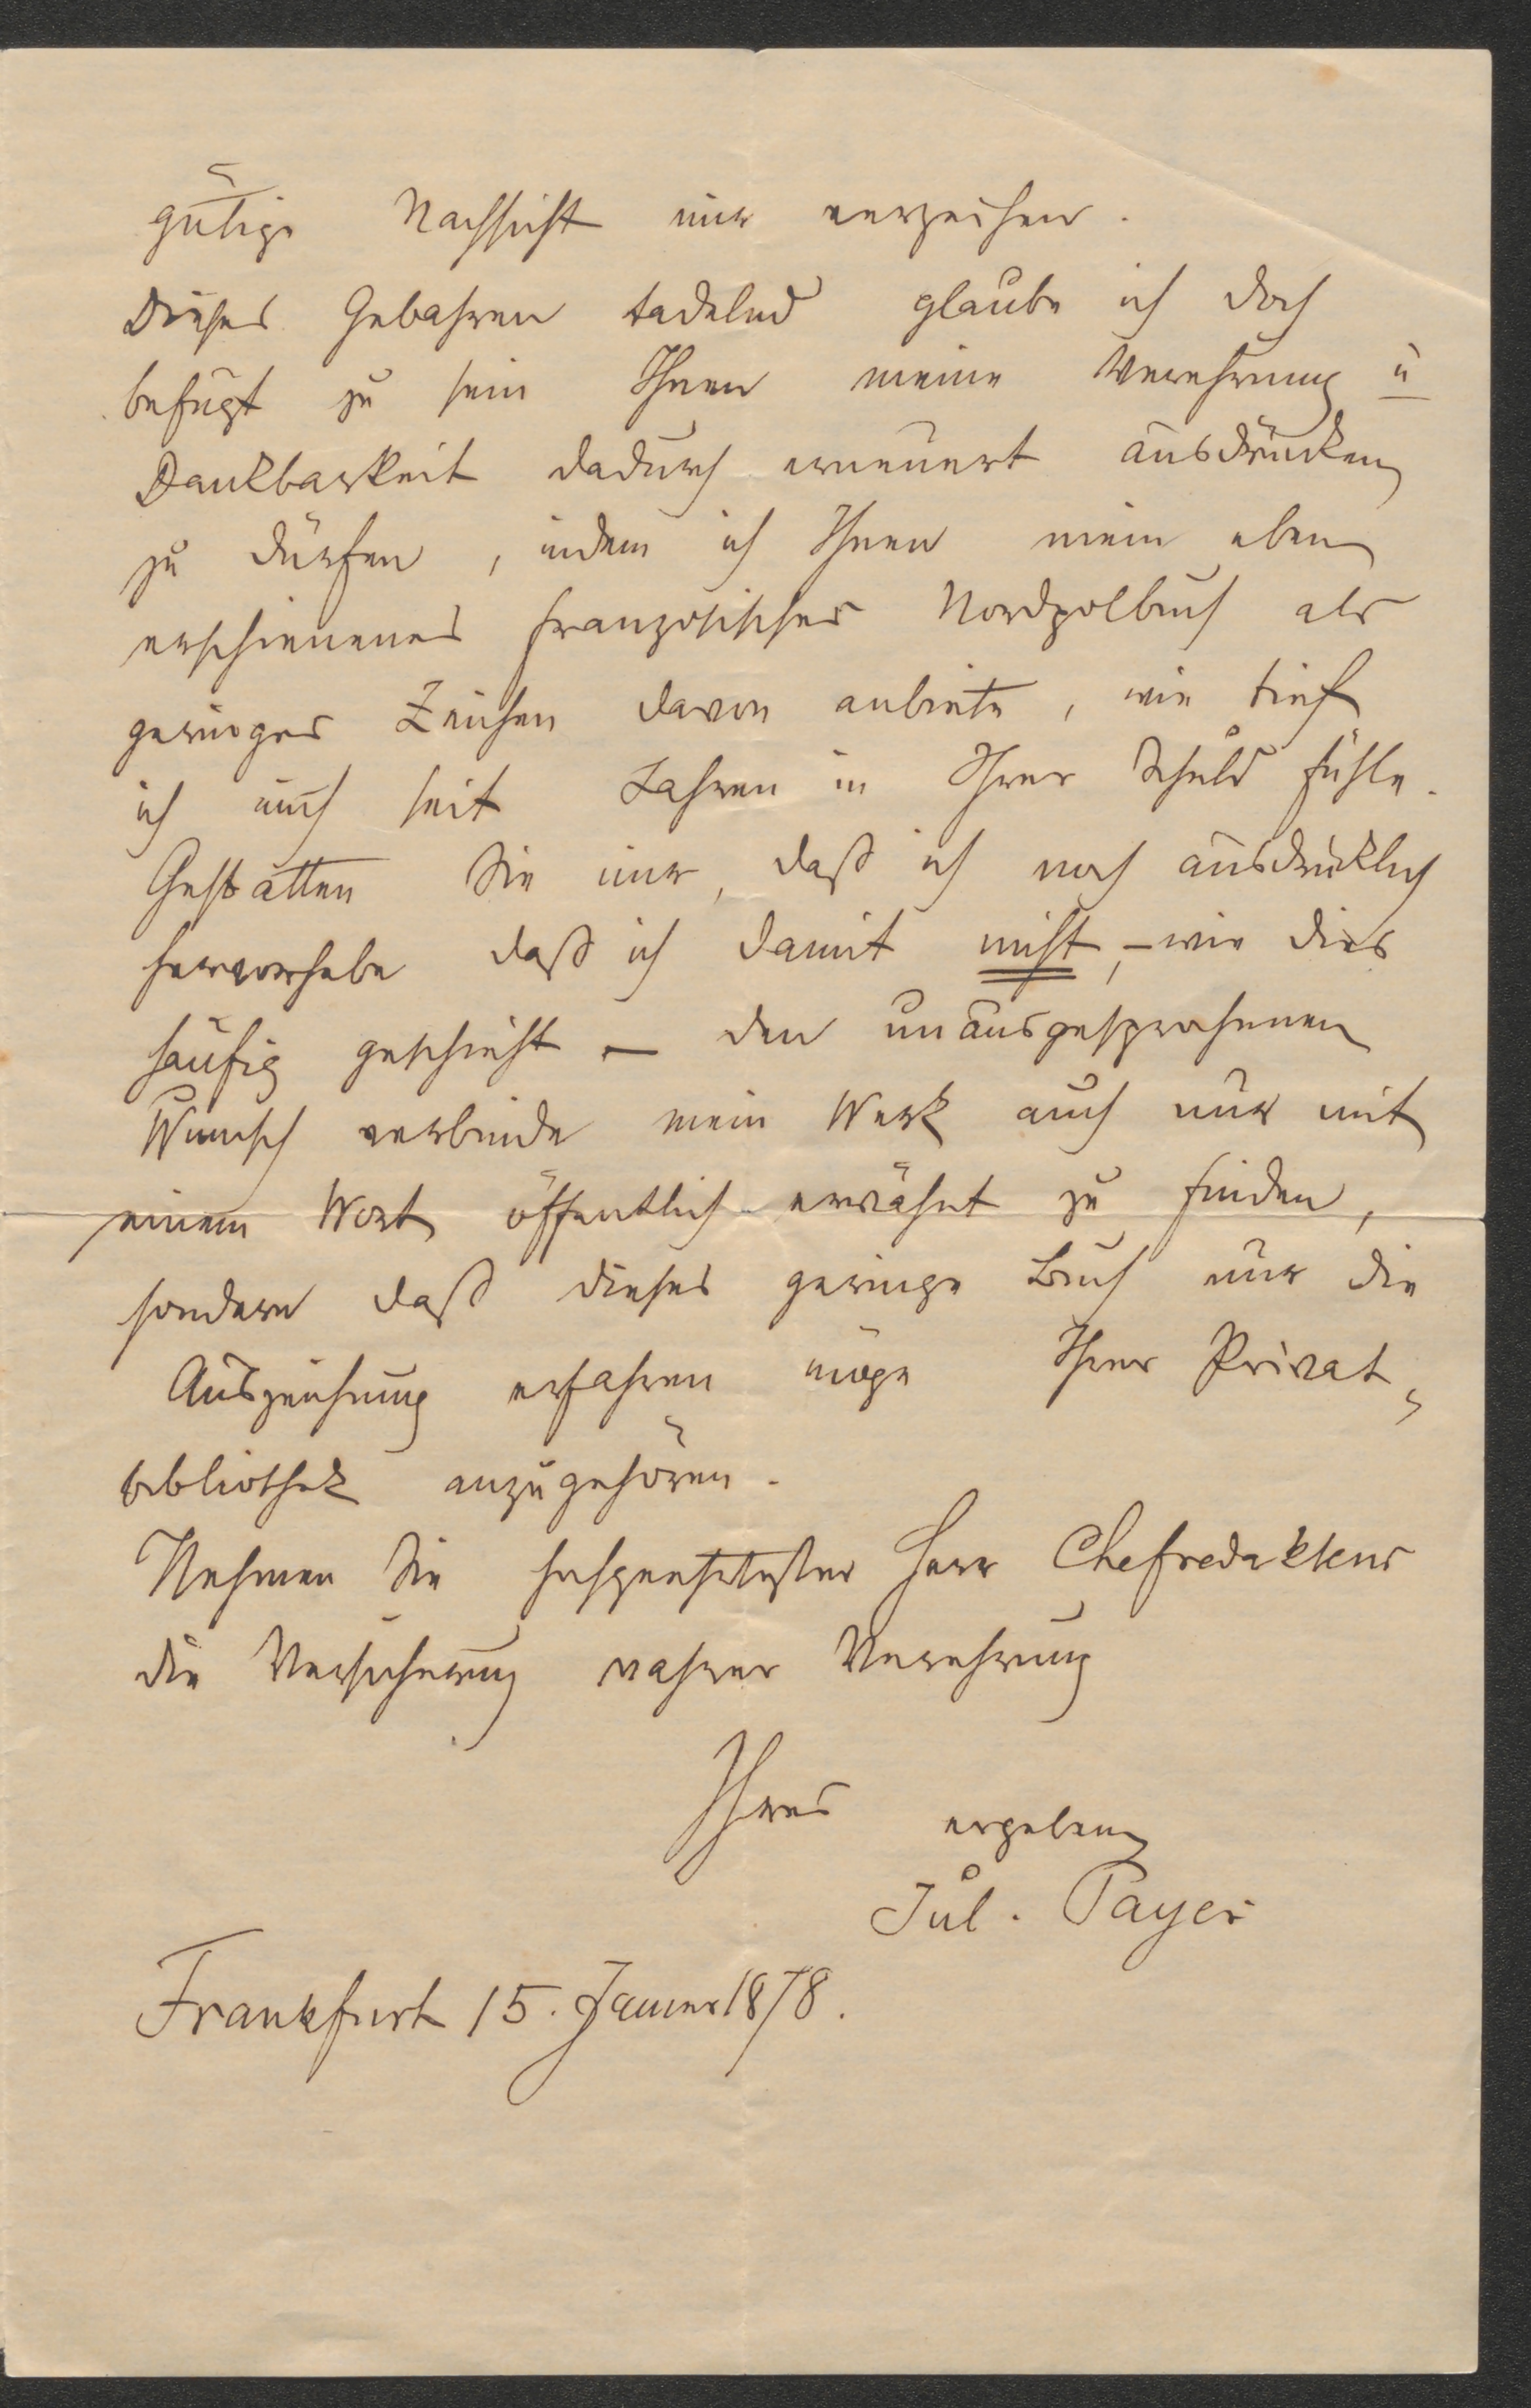 gütige Nachsicht mir verzeihen.
Dieses Gebahren tadelnd glaube ich doch
befugt zu sein Ihnen meine Verehrung u
Dankbarkeit dadurch erneuert ausdrücken
zu dürfen, indem ich Ihnen mein eben
erschienenes französisches Nordpolbuch als
geringes Zeichen davon anbiete, wie tief
ich mich seit Jahren in Ihrer Schuld fühle.
Gestatten Sie mir, daß ich noch ausdrücklich
hervorhebe daß ich damit nicht, – wie dies
häufig geschieht – den unausgesprochenen
Wunsch verbinde mein Werk auch nur mit
einem Wort öffentlich erwähnt zu finden,
sondern daß dieses geringe Buch nur die
Auszeichnung erfahren möge Ihrer Privat-
bibliothek anzugehören.
Nehmen Sie hochgeehrtester Herr Chefredakteur
die Versicherung wahrer Verehrung
Ihres ergebenen
Jul. Payer
Frankfurt 15. Jänner 1878.